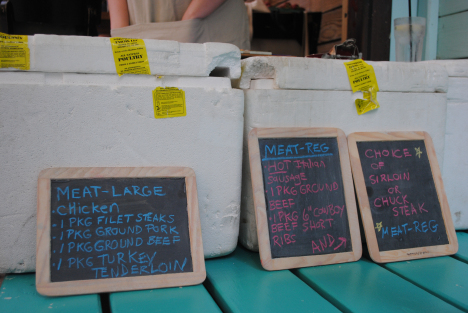 POULTRY
POULTRY
MEAT-LARGE
chicken
1 PKG FILET STEAKS
1 PKG GROUND PORK
1 PKG GROUND BEEF
1 PKG TURKEY
TENDERLOIN
MEAT-REG
HOT ITALIAN
SAUSAGE
1 PKG GROUND
BEEF
1 PKG 6" COWBOY
BEEF SHORT
RIBS
AND
CHOICE
OF
SIRLOIN
OR
CHUCK
STEAK
MEAT-REG